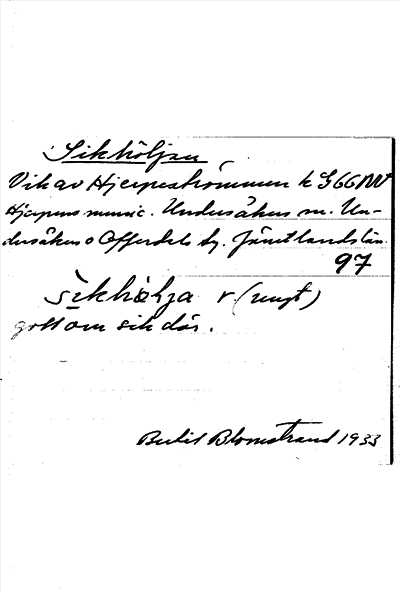 Sikhöljan
Vik av Hjerpeströmmen k G66NV
Hjerpens munic. Undersåkers sn. Un-
dersåkers o Offerdals tg. Jämtlands län.
97
sikhölja v. (yngt)
gott om sik där.
Bertil Blomstrand 1933